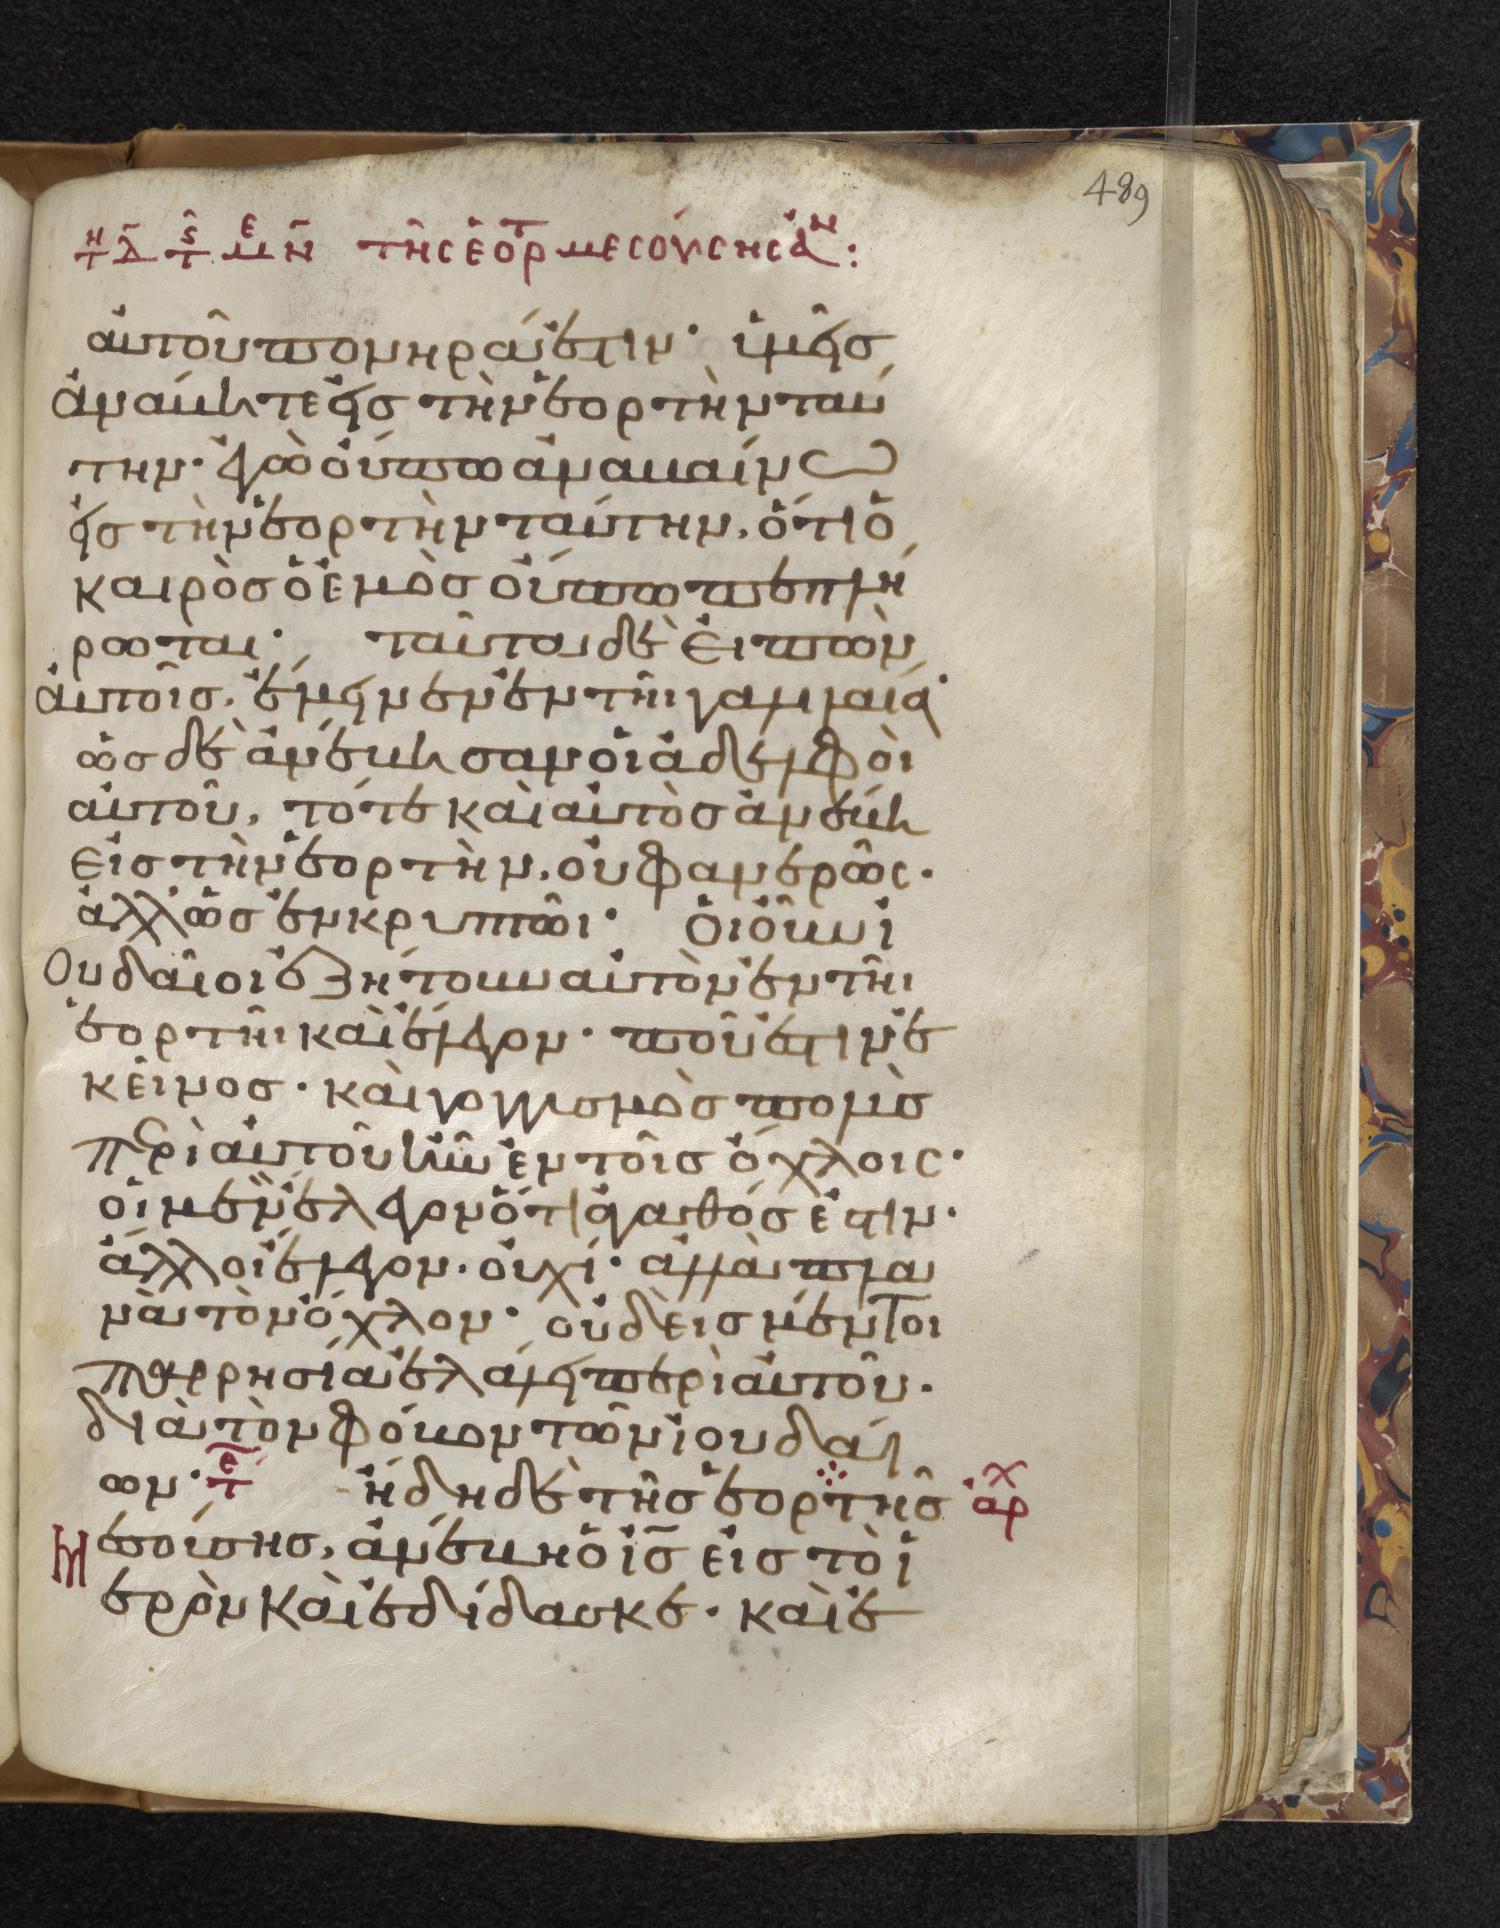 489
τῆς ἑορ μεσούσης
αὐτοῦ πονηρά ἐστιν· ὑμεῖς
ἀνάβητε εἰς τὴν ἑορτὴν ταύ
την· ἐγὼ οὔπω ἀναβαίνω
εἰς τὴν ἑορτὴν ταύτην, ὅτι ὁ
καιρὸς ὁ ἐμὸς οὔπω πεπλή
ρωται· ταῦτα δὲ εἰπὼν
αὐτοῖς, ἔμεινεν ἐν τῆι γαλιλαία·
ὡς δὲ ἀνέβησαν οἱ ἀδελφοὶ
αὐτοῦ, τότε καὶ αὐτὸς ἀνέβη
εἰς τὴν ἑορτὴν, οὐ φανερῶς·
ἀλλ ὡς ἐν κρυπτῶι· οἱ οὖν ἰ
ουδαῖοι ἐζήτουν αὐτὸν ἐν τῆι
ἑορτῆι καὶ ἔλεγον· ποῦ ἐστιν ἐ
κεῖνος· καὶ γογγυσμὸς πολὺς
περὶ αὐτοῦ ἦν ἐν τοῖς ὄχλοις·
οἱ μὲν ἔλεγον ὅτι ἀγαθός ἐστιν·
ἄλλοι ἔλεγον· οὐχί· ἀλλὰ πλα
νὰ τὸν ὄχλον· οὐδεὶς μέντοι
παρρησία ἐλάλει περὶ αὐτοῦ·
διὰ τὸν φόβον τῶν ἰουδαί
ων· ἤδη δὲ τῆς ἑορτῆς ἀρχ
μεσούσης, ἀνέβη ὁ ις εἰς τὸ ἱ
ερὸν καὶ ἐδίδασκε· καὶ ἐ